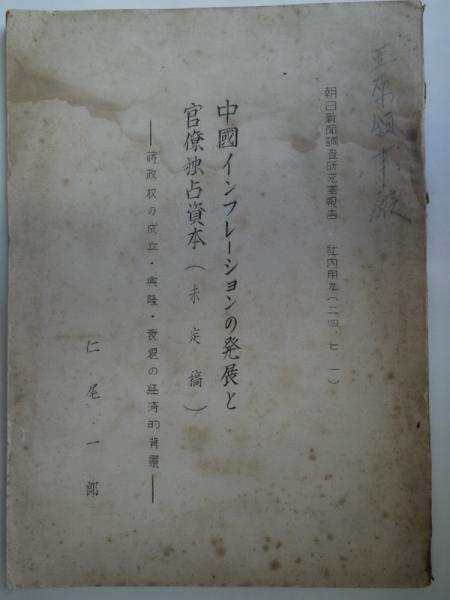 朝日新聞調査研究室報告　社内用九(二四、七、一)
中國インフレーションの発展と
官僚独占資本(未定稿)
——蒋政权の成立・興隆・衰退の経済的背景——
仁尾一郎